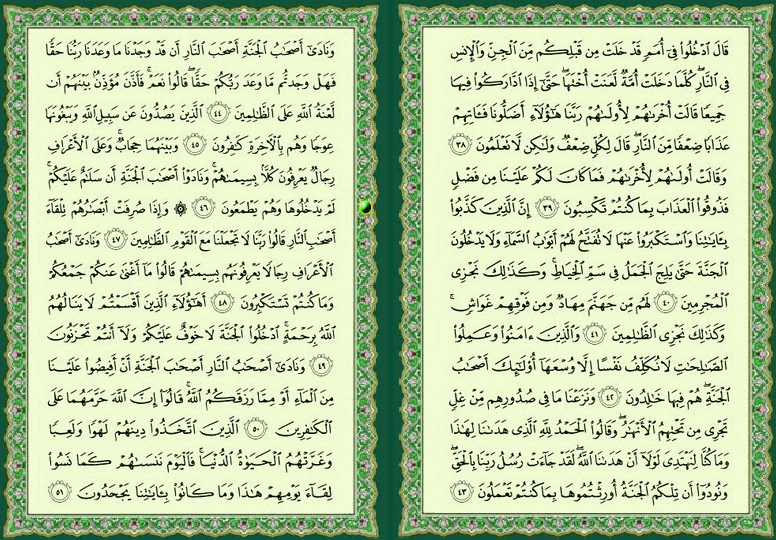 قَالَ ٱدْخُلُوا۟ فِىٓ أُمَمٍ قَدْ خَلَتْ مِن قَبْلِكُم مِّنَ ٱلْجِنِّ وَٱلْإِنسِ
فِى ٱلنَّارِ ۖ كُلَّمَا دَخَلَتْ أُمَّةٌ لَّعَنَتْ أُخْتَهَا ۖ حَتَّىٰٓ إِذَا ٱدَّارَكُوا۟ فِيهَا
جَمِيعًا قَالَتْ أُخْرَىٰهُمْ لِأُولَىٰهُمْ رَبَّنَا هَـٰٓؤُلَآءِ أَضَلُّونَا فَـَٔاتِهِمْ
عَذَابًا ضِعْفًا مِّنَ ٱلنَّارِ ۖ قَالَ لِكُلٍّ ضِعْفٌ وَلَـٰكِن لَّا تَعْلَمُونَ ٣٨
وَقَالَتْ أُولَىٰهُمْ لِأُخْرَىٰهُمْ فَمَا كَانَ لَكُمْ عَلَيْنَا مِن فَضْلٍ
فَذُوقُوا۟ ٱلْعَذَابَ بِمَا كُنتُمْ تَكْسِبُونَ ٣٩ إِنَّ ٱلَّذِينَ كَذَّبُوا۟
بِـَٔايَـٰتِنَا وَٱسْتَكْبَرُوا۟ عَنْهَا لَا تُفَتَّحُ لَهُمْ أَبْوَٰبُ ٱلسَّمَآءِ وَلَا يَدْخُلُونَ
ٱلْجَنَّةَ حَتَّىٰ يَلِجَ ٱلْجَمَلُ فِى سَمِّ ٱلْخِيَاطِ ۚ وَكَذَٰلِكَ نَجْزِى
ٱلْمُجْرِمِينَ ٤٠ لَهُم مِّن جَهَنَّمَ مِهَادٌ وَمِن فَوْقِهِمْ غَوَاشٍ ۚ
وَكَذَٰلِكَ نَجْزِى ٱلظَّـٰلِمِينَ ٤١ وَٱلَّذِينَ ءَامَنُوا۟ وَعَمِلُوا۟
ٱلصَّـٰلِحَـٰتِ لَا نُكَلِّفُ نَفْسًا إِلَّا وُسْعَهَآ أُو۟لَـٰٓئِكَ أَصْحَـٰبُ
ٱلْجَنَّةِ ۖ هُمْ فِيهَا خَـٰلِدُونَ ٤٢ وَنَزَعْنَا مَا فِى صُدُورِهِم مِّنْ غِلٍّ
تَجْرِى مِن تَحْتِهِمُ ٱلْأَنْهَـٰرُ ۖ وَقَالُوا۟ ٱلْحَمْدُ لِلَّهِ ٱلَّذِى هَدَىٰنَا لِهَـٰذَا
وَمَا كُنَّا لِنَهْتَدِىَ لَوْلَآ أَنْ هَدَىٰنَا ٱللَّهُ ۖ لَقَدْ جَآءَتْ رُسُلُ رَبِّنَا بِٱلْحَقِّ ۖ
وَنُودُوٓا۟ أَن تِلْكُمُ ٱلْجَنَّةُ أُورِثْتُمُوهَا بِمَا كُنتُمْ تَعْمَلُونَ ٤٣
وَنَادَىٰٓ أَصْحَـٰبُ ٱلْجَنَّةِ أَصْحَـٰبَ ٱلنَّارِ أَن قَدْ وَجَدْنَا مَا وَعَدَنَا رَبُّنَا حَقًّا
فَهَلْ وَجَدتُّم مَّا وَعَدَ رَبُّكُمْ حَقًّا ۖ قَالُوا۟ نَعَمْ ۚ فَأَذَّنَ مُؤَذِّنٌۢ بَيْنَهُمْ أَن
لَّعْنَةُ ٱللَّهِ عَلَى ٱلظَّـٰلِمِينَ ٤٤ ٱلَّذِينَ يَصُدُّونَ عَن سَبِيلِ ٱللَّهِ وَيَبْغُونَهَا
عِوَجًا وَهُم بِٱلْـَٔاخِرَةِ كَـٰفِرُونَ ٤٥ وَبَيْنَهُمَا حِجَابٌ ۚ وَعَلَى ٱلْأَعْرَافِ
رِجَالٌ يَعْرِفُونَ كُلًّۢا بِسِيمَىٰهُمْ ۚ وَنَادَوْا۟ أَصْحَـٰبَ ٱلْجَنَّةِ أَن سَلَـٰمٌ عَلَيْكُمْ ۚ
لَمْ يَدْخُلُوهَا وَهُمْ يَطْمَعُونَ ٤٦ ۞ وَإِذَا صُرِفَتْ أَبْصَـٰرُهُمْ تِلْقَآءَ
أَصْحَـٰبِ ٱلنَّارِ قَالُوا۟ رَبَّنَا لَا تَجْعَلْنَا مَعَ ٱلْقَوْمِ ٱلظَّـٰلِمِينَ ٤٧ وَنَادَىٰٓ أَصْحَـٰبُ
ٱلْأَعْرَافِ رِجَالًا يَعْرِفُونَهُم بِسِيمَىٰهُمْ قَالُوا۟ مَآ أَغْنَىٰ عَنكُمْ جَمْعُكُمْ
وَمَا كُنتُمْ تَسْتَكْبِرُونَ ٤٨ أَهَـٰٓؤُلَآءِ ٱلَّذِينَ أَقْسَمْتُمْ لَا يَنَالُهُمُ
ٱللَّهُ بِرَحْمَةٍ ۚ ٱدْخُلُوا۟ ٱلْجَنَّةَ لَا خَوْفٌ عَلَيْكُمْ وَلَآ أَنتُمْ تَحْزَنُونَ
٤٩ وَنَادَىٰٓ أَصْحَـٰبُ ٱلنَّارِ أَصْحَـٰبَ ٱلْجَنَّةِ أَنْ أَفِيضُوا۟ عَلَيْنَا
مِنَ ٱلْمَآءِ أَوْ مِمَّا رَزَقَكُمُ ٱللَّهُ ۚ قَالُوٓا۟ إِنَّ ٱللَّهَ حَرَّمَهُمَا عَلَى
ٱلْكَـٰفِرِينَ ٥٠ ٱلَّذِينَ ٱتَّخَذُوا۟ دِينَهُمْ لَهْوًا وَلَعِبًا
وَغَرَّتْهُمُ ٱلْحَيَوٰةُ ٱلدُّنْيَا ۚ فَٱلْيَوْمَ نَنسَىٰهُمْ كَمَا نَسُوا۟
لِقَآءَ يَوْمِهِمْ هَـٰذَا وَمَا كَانُوا۟ بِـَٔايَـٰتِنَا يَجْحَدُونَ ٥١